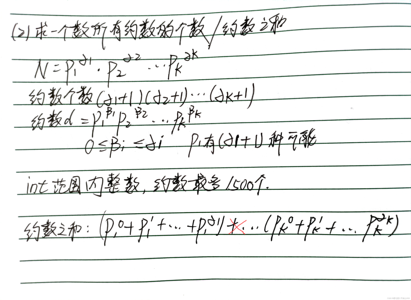 (2) 求一个数所有约数的个数/约数之和
N = p₁^α₁ · p₂^α₂ ... pₖ^αₖ
约数个数 (α₁+1)(α₂+1)...(αₖ+1)
约数d = p₁^β₁ p₂^β₂ ... pₖ^βₖ
0 ≤ βi ≤ αi p₁有(α₁+1)种可能
int范围内整数,约数最多1500个.
约数之和: (p₁⁰ + p₁¹ + ... + p₁^α₁) ... (pₖ⁰ + pₖ¹ + ... pₖ^αₖ)